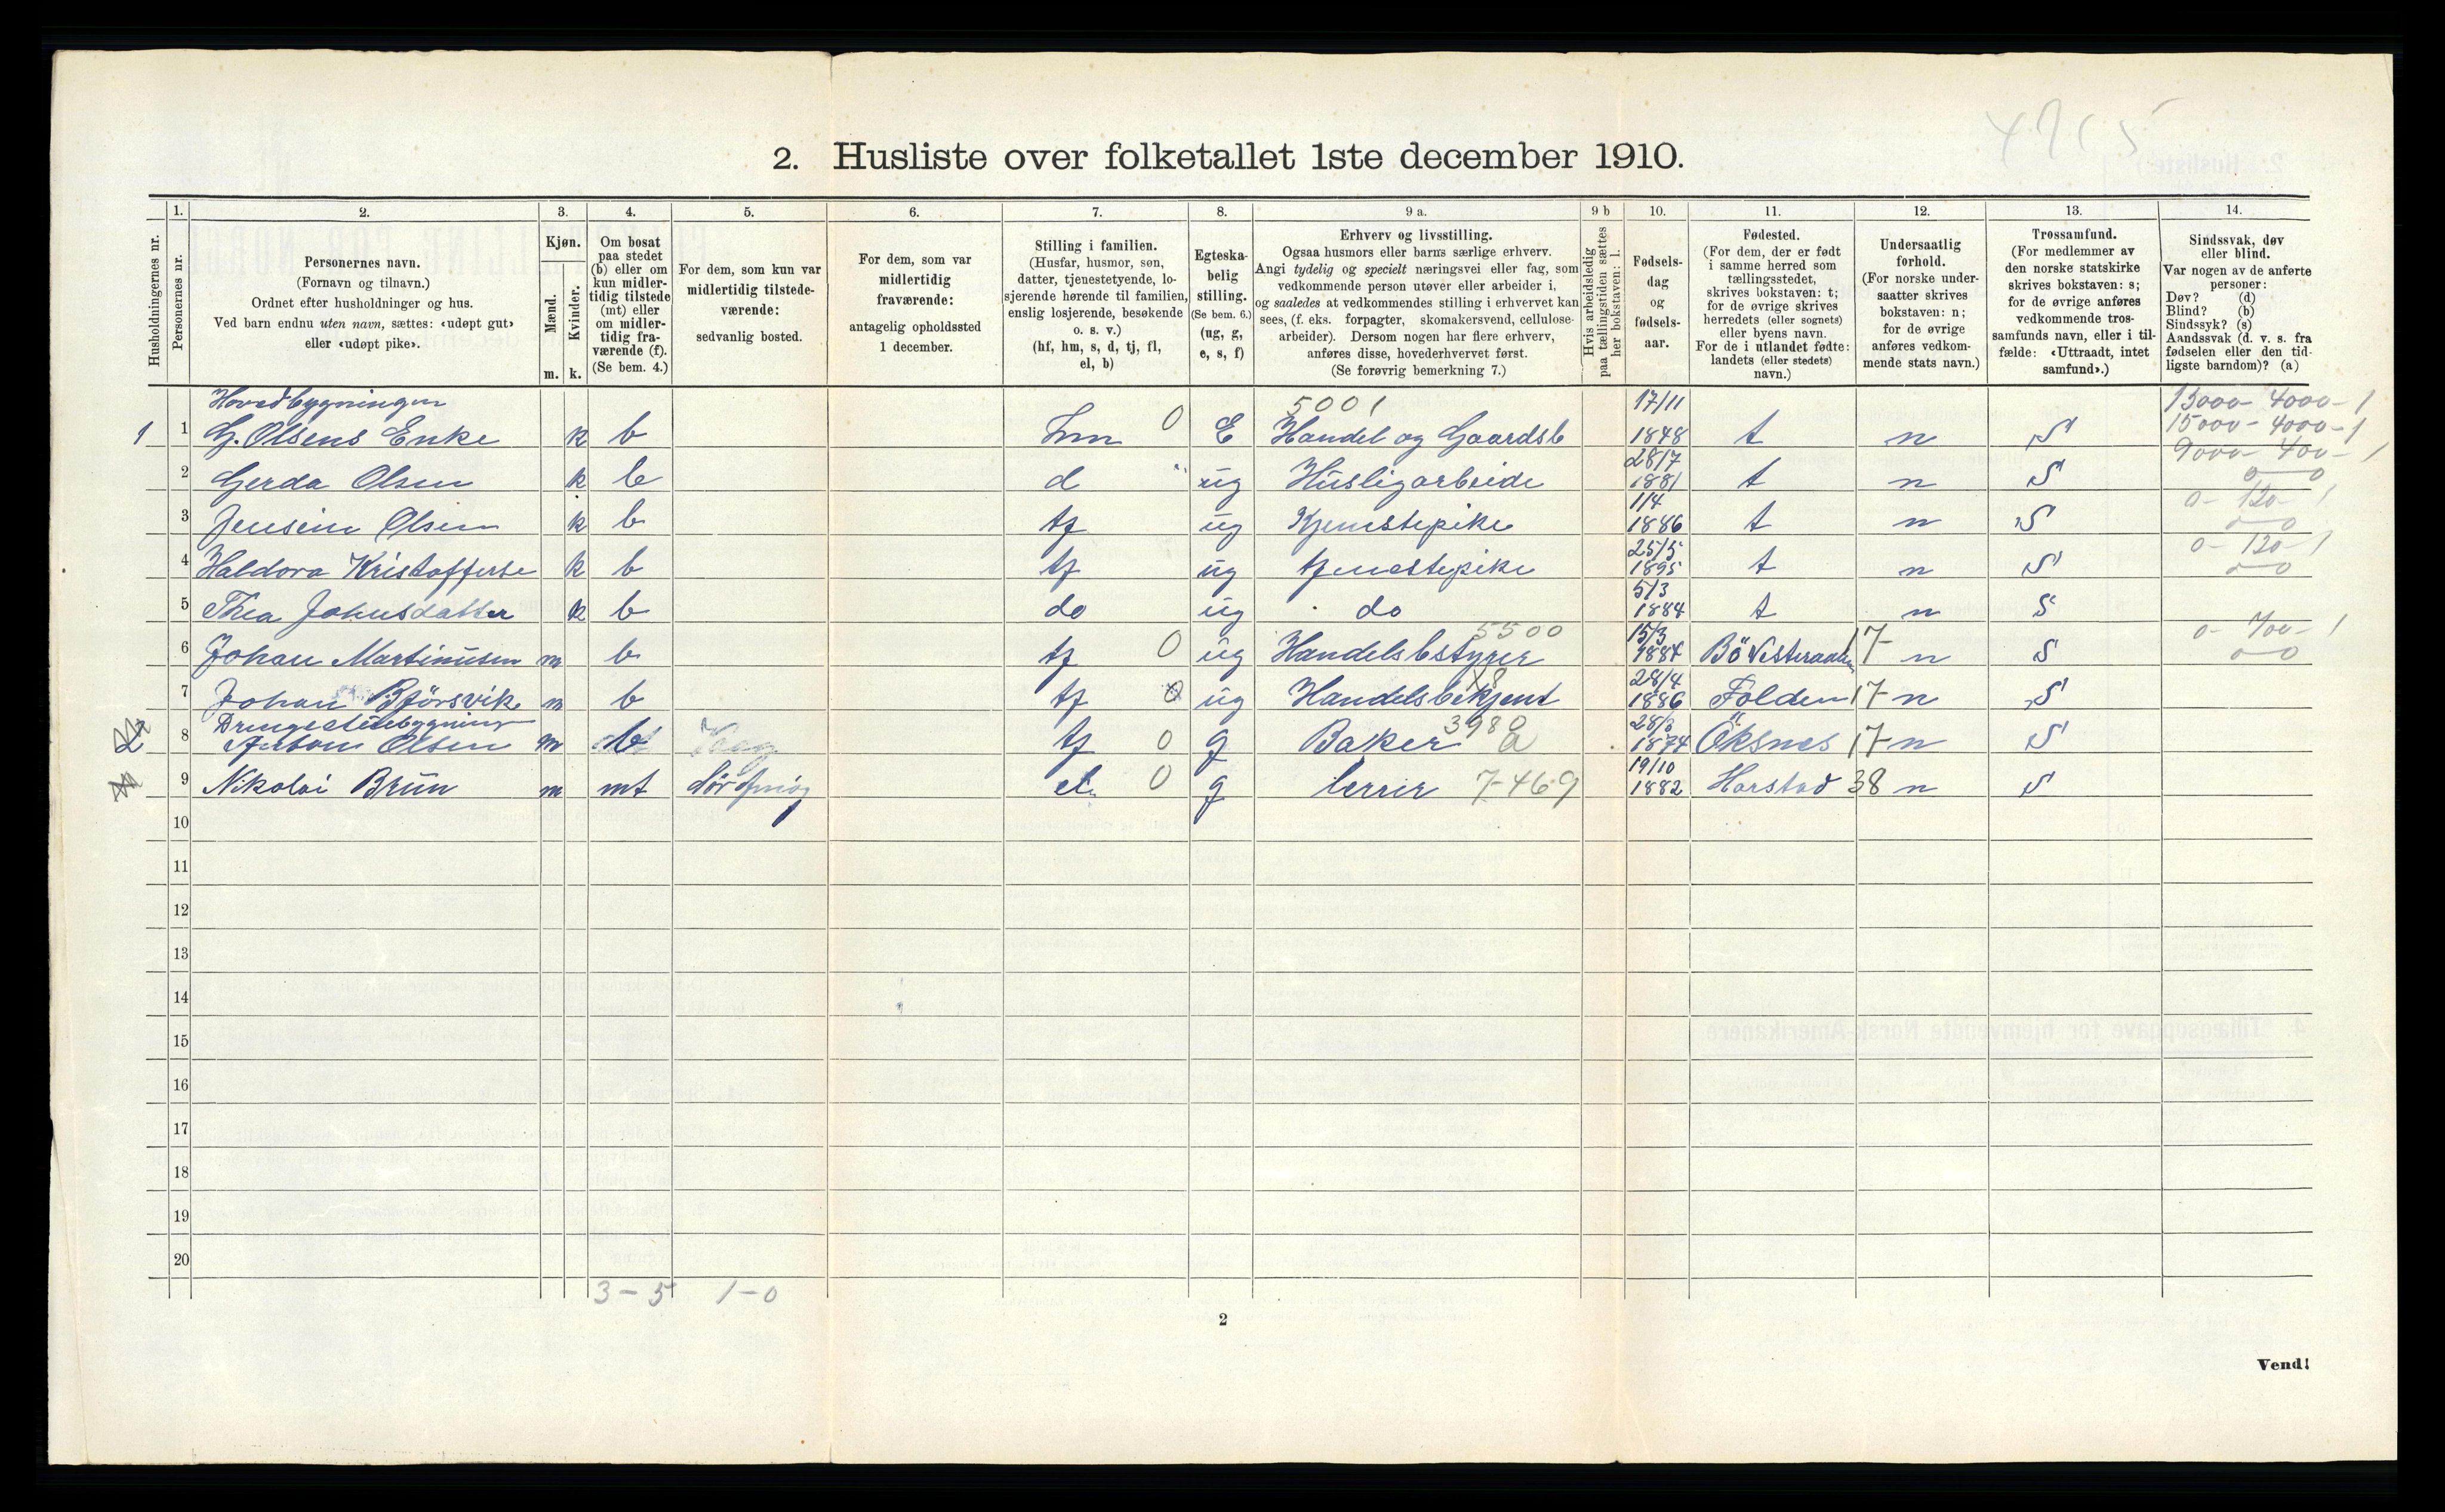 2. Husliste over folketallet 1ste december 1910.
Husholdningernes nr.
1.
Personernes nr.
2.
Personernes navn.
(Fornavn og tilnavn.)
Ordnet efter husholdninger og hus.
Ved barn endnu uten navn, sættes: «udøpt gut»
eller «udøpt pike».
3.
Kjøn.
Mænd.
Kvinder.
m. k.
4.
Om bosat
paa stedet
(b) eller om
kun midler-
tidig tilstede
(mt) eller
om midler-
tidig fra-
værende (f).
(Se bem. 4.)
5.
For dem, som kun var
midlertidig tilstede-
værende:
sedvanlig bosted.
6.
For dem, som var
midlertidig
fraværende:
antagelig opholdssted
1 december.
7.
Stilling i familien.
(Husfar, husmor, søn,
datter, tjenestetyende, lo-
sjerende hørende til familien,
enslig losjerende, besøkende
o. s. v.)
(hf, hm, s, d, tj, fl,
el, b)
8.
Egteska-
belig
stilling.
(Se bem. 6.)
(ug, g,
e, s, f)
9 a.
Erhverv og livsstilling.
Ogsaa husmors eller barns særlige erhverv.
Angi tydelig og specielt næringsvei eller fag, som
vedkommende person utøver eller arbeider i,
og saaledes at vedkommendes stilling i erhvervet kan
sees, (f. eks. forpagter, skomakersvend, cellulose-
arbeider). Dersom nogen har flere erhverv,
anføres disse, hovederhvervet først.
(Se forøvrig bemerkning 7.)
9 b
Hvis arbeidsledig
paa tællingstiden sættes
her bokstaven: l.
10.
Fødsels-
dag
og
fødsels-
aar.
11.
Fødested.
(For dem, der er født
i samme herred som
tællingsstedet,
skrives bokstaven: t;
for de øvrige skrives
herredets (eller sognets)
eller byens navn.
For de i utlandet fødte:
landets (eller stedets)
navn.)
12.
Undersaatlig
forhold.
(For norske under-
saatter skrives
bokstaven: n;
for de øvrige
anføres vedkom-
mende stats navn.)
13.
Trossamfund.
(For medlemmer av
den norske statskirke
skrives bokstaven: s;
for de øvrige anføres
vedkommende tros-
samfunds navn, eller i til-
fælde: «Uttraadt, intet
samfund».)
14.
Sindssvak, døv
eller blind.
Var nogen av de anførte
personer:
Døv? (d)
Blind? (b)
Sindssyk? (s)
Aandssvak (d. v. s. fra
fødselen eller den tid-
ligste barndom)? (a)
Hovedbygningen 5001 17/11 15000- 4000- 1
1 1 G. Olsens Enke k b hm 0 E Handel og Gaardsb 1848 t n S 15000- 4000- 1
28/7 9000- 400- 1
2 Gerda Olsen k b d ug Husligarbeide 1881 t n S 0 0
1/4 0- 120- 1
3 Jensein Olsen k b tj ug Tjenestepike 1886 t n S 0 0
25/5 0- 120- 1
4 Haldora Kristofferse k b tj ug tjenestepike 1895 t n S 0 0
5/3
5 Thea Johnsdatter k b do ug do 1884 t n S
5500 15/3 0- 700- 1
6 Johan Martinusen m b tj 0 ug Handelsbstyrer 1884 Bö Vesteraalen 17- n S 0 0
28/4
7 Johan Björsvik m b tj 0 ug Handelsbetjent 1886 Folden 17- n S
Drengestuebygning 3980
2 8 Anton Olsen m b tj 0 g Baker a 1874 Öksnes 17- n S
19/10
9 Nikolai Brun m mt el. 0 g 7-469 1882 Harstad 38 n S
10
11
12
13
14
15
16
17
18
19
20
3 - 5 1 - 0
2
Vend!